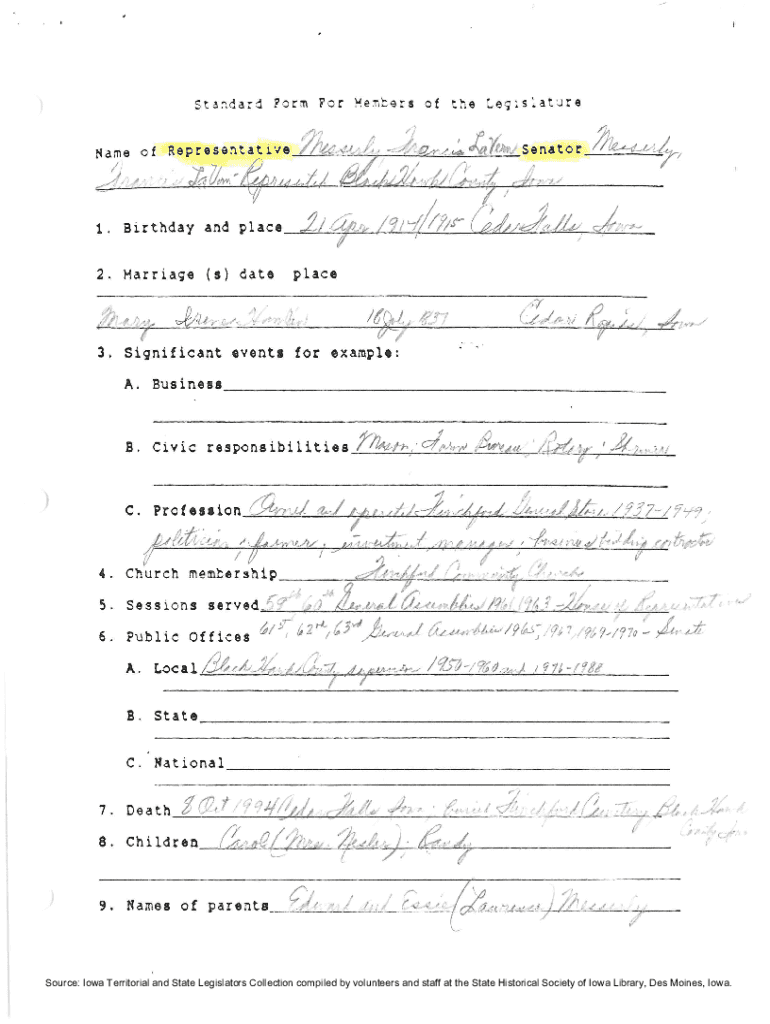 Standard Form For Members of the Legislature
Name of Representative Messerly, Francis LaVern Senator Messerly,
Francis LaVern - Represented Black Hawk County, Iowa
1. Birthday and place 21 Apr 1914/1915 Cedar Falls, Iowa
2. Marriage (s) date place
Mary Irene 16 July 1937 Cedar Rapids, Iowa
3. Significant events for example:
A. Business
B. Civic responsibilities Mason; Farm Bureau; Rotary; Shriners
C. Profession Owned and operated Finchford General Store 1937-1949;
politician; farmer; investment manager; business & building contractor
4. Church membership Finchford Community Church
5. Sessions served 59th, 60th General Assemblies 1961, 1963 - House of Representatives
6. Public Offices 61st, 62nd, 63rd General Assemblies 1965, 1967, 1969-1970 - Senate
A. Local Black Hawk County supervisor 1950-1960 and 1976-1988
B. State
C. National
7. Death 8 Oct 1994 Cedar Falls, Iowa; buried Finchford Cemetery Black Hawk
County, Iowa
8. Children Carol (Mrs. Nesler); Randy
9. Names of parents Edward and Essie (Lawrence) Messerly
Source: Iowa Territorial and State Legislators Collection compiled by volunteers and staff at the State Historical Society of Iowa Library, Des Moines, Iowa.